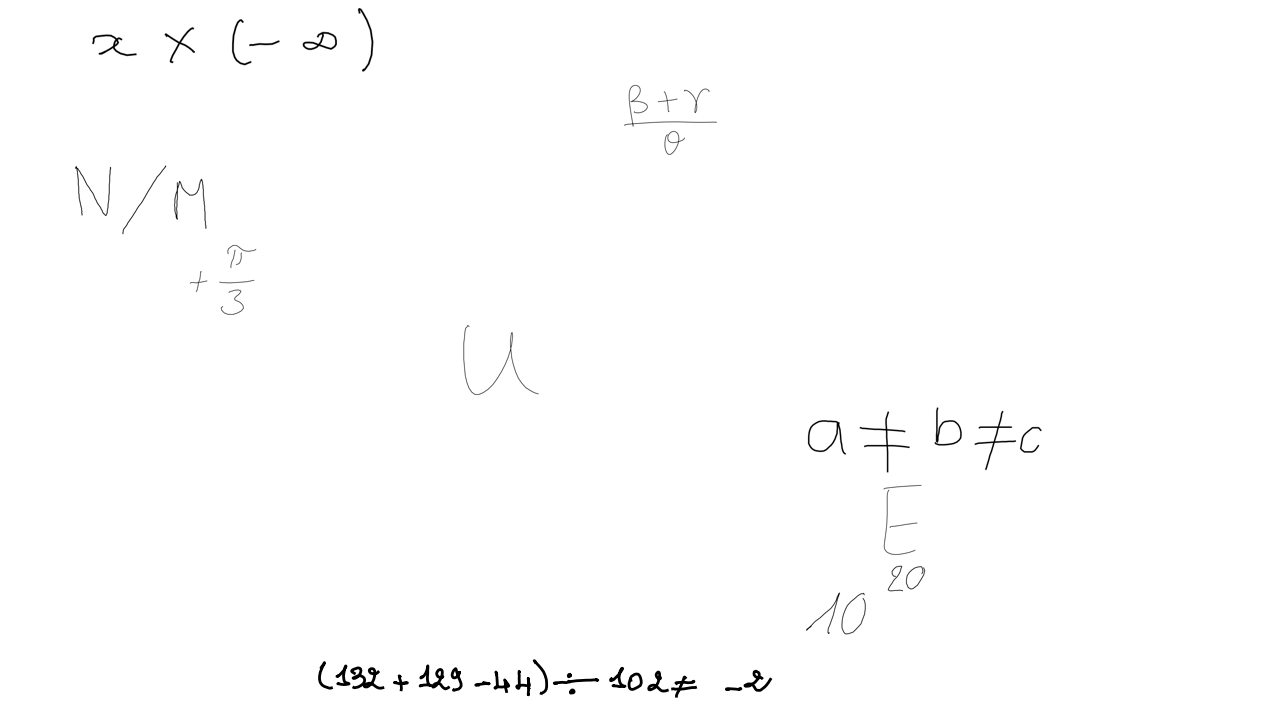 x × (-∞)
β+γ
θ
N/M
+ π/3
U
a ≠ b ≠ c
E
10^20
(132 + 129 - 44) ÷ 102 ≠ -2